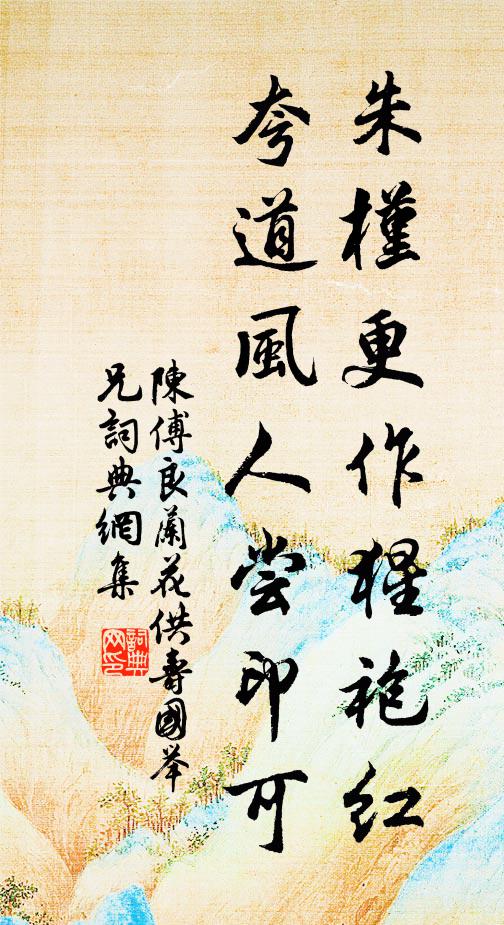 朱槿更作猩袍红
夸道風人尝印可
陳傅良蘭花供壽國举
兄詞典網集
詞典
网印